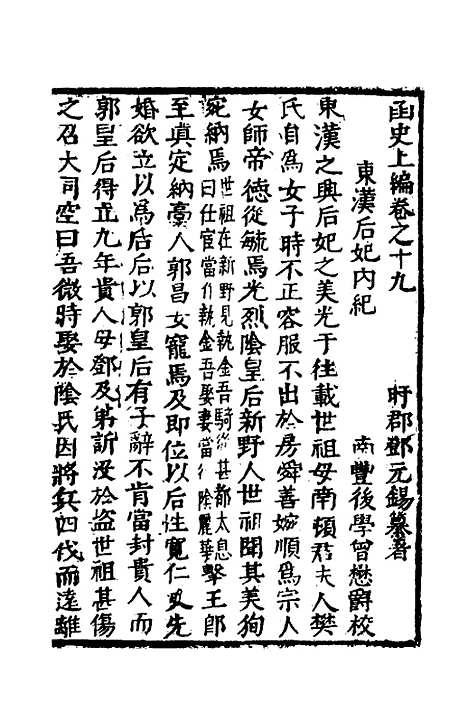 函史上編卷之十九
盱郡鄧元錫纂著
東漢后妃內紀
南豐後學曾懋爵校
東漢之興后妃之美光于往載世祖母南頓君夫人樊
氏自為女子時不正容服不出於房舜善婉順為宗人
女師帝德從毓焉光烈陰皇后新野人世祖聞其美狥
宛納焉世祖在新野見執金吾騎從甚都太息
曰仕宦當作執金吾娶妻當得陰麗華擊王郎
至真定納槀人郭昌女寵焉及即位以后性寬仁又先
婚欲立以為后后以郭皇后有子辭不肯當封貴人而
郭皇后得立九年貴人母鄧及弟訢沒於盜世祖甚傷
之召大司空曰吾微時娶於陰氏因將兵四伐而遠離